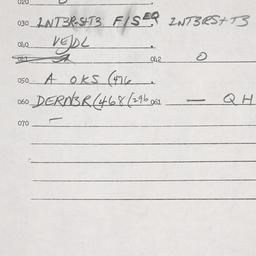 020
030 INT3RST3 F/SEQ INT3RST3
040 VEJDL .
041 042 0
050 A OKS (476
060 DERN3R(468(296 061 — QH
070 —